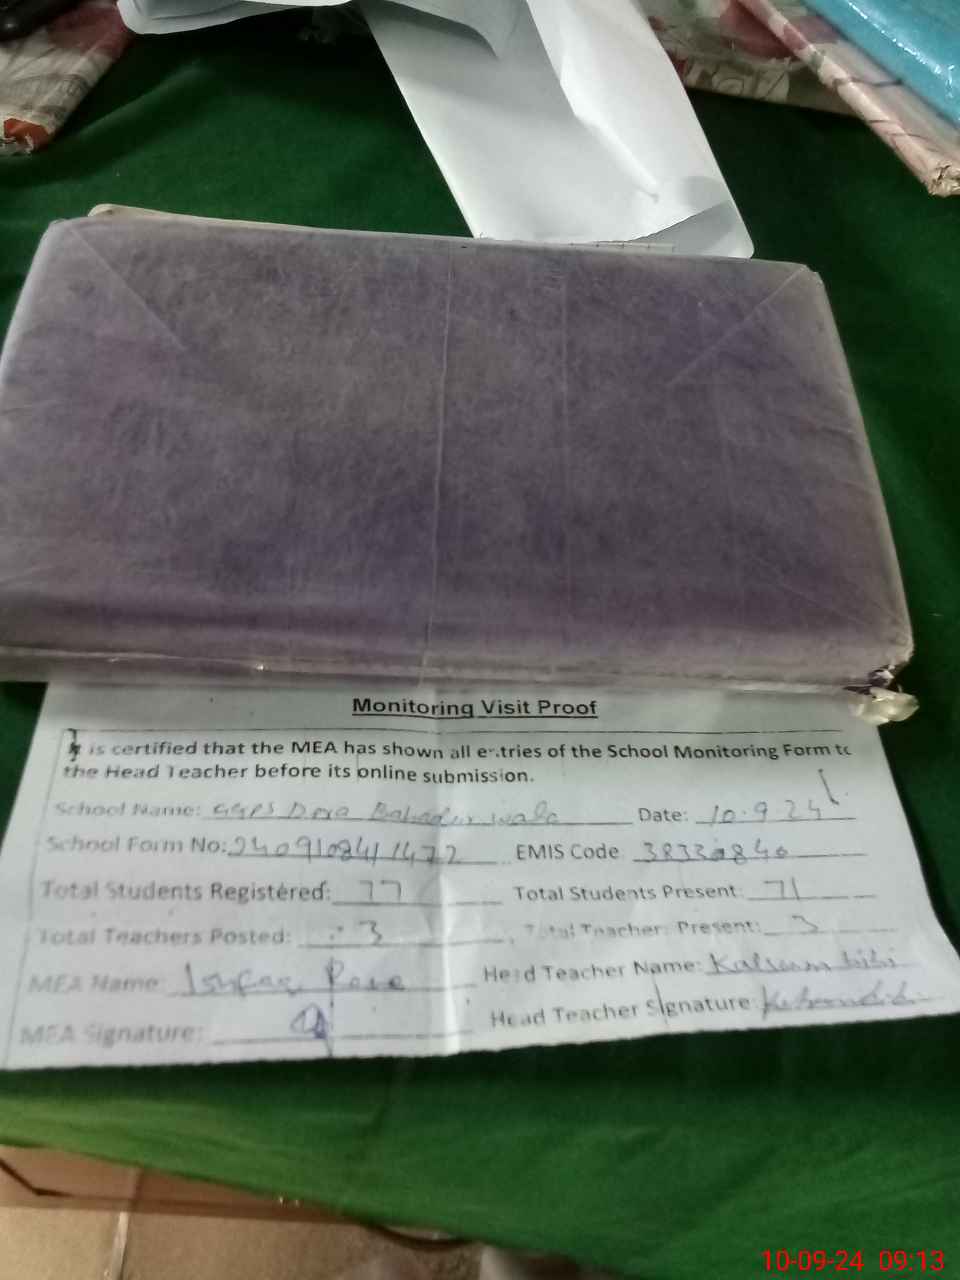 Monitoring Visit Proof
It is certified that the MEA has shown all entries of the School Monitoring Form to
the Head Teacher before its online submission.
School Name: GGPS Dera Bahadur wala Date: 10.9.24
School Form No: 2409108411472 EMIS Code 38330840
Total Students Registered: 77 Total Students Present: 71
Total Teachers Posted: 3 Total Teacher Present: 3
MEA Name: Head Teacher Name: Kalsoom bibi
MEA Signature: Head Teacher Signature:
10-09-24 09:13